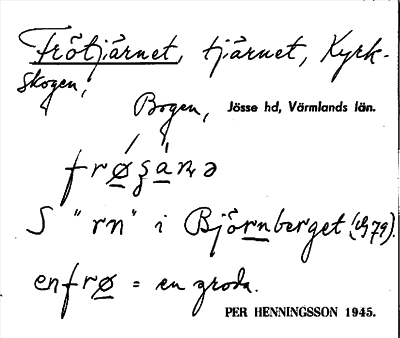 Frötjärnet, tjärnet, Kyrk-
skogen,
Bogen, Jösse hd, Värmlands län.
frøʂänə
S "rn" i Björnberget
en frø = en groda.
PER HENNINGSSON 1945.